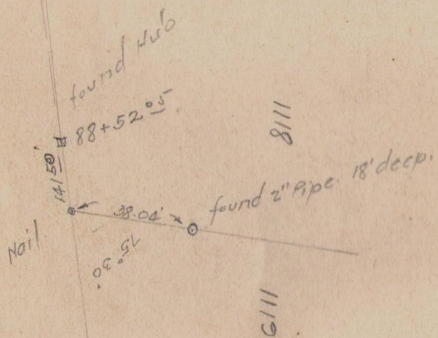 found Hub
88+52.05
141.50'
Nail
38.04'
15°30'
found 2" Pipe. 18' deep.
1118
1119